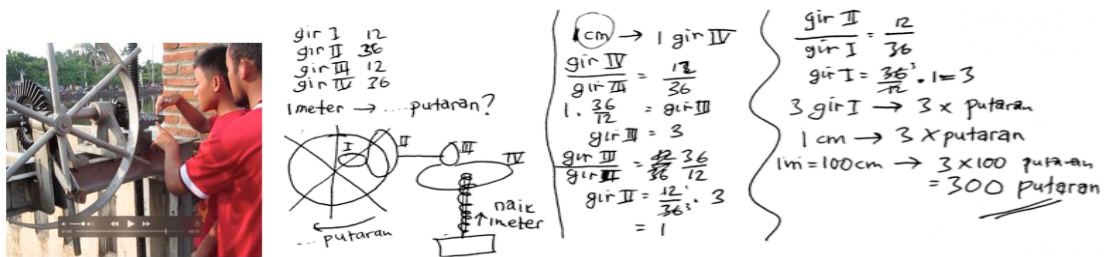 gir I 12
gir II 36
gir III 12
gir IV 36
1 meter → .... putaran?
I
II
III
IV
naik
1 meter
... putaran
1 cm → 1 gir IV
gir IV / gir III = 12 / 36
1 . 36 / 12 = gir III
gir III = 3
gir III / gir II = 12 36 / 36 12
gir II = 12 1 / 36 3 . 3
= 1
gir II / gir I = 12 / 36
gir I = 36 3 / 12 . 1 = 3
3 gir I → 3 x putaran
1 cm → 3 x putaran
1m = 100 cm → 3 x 100 putaran
= 300 putaran